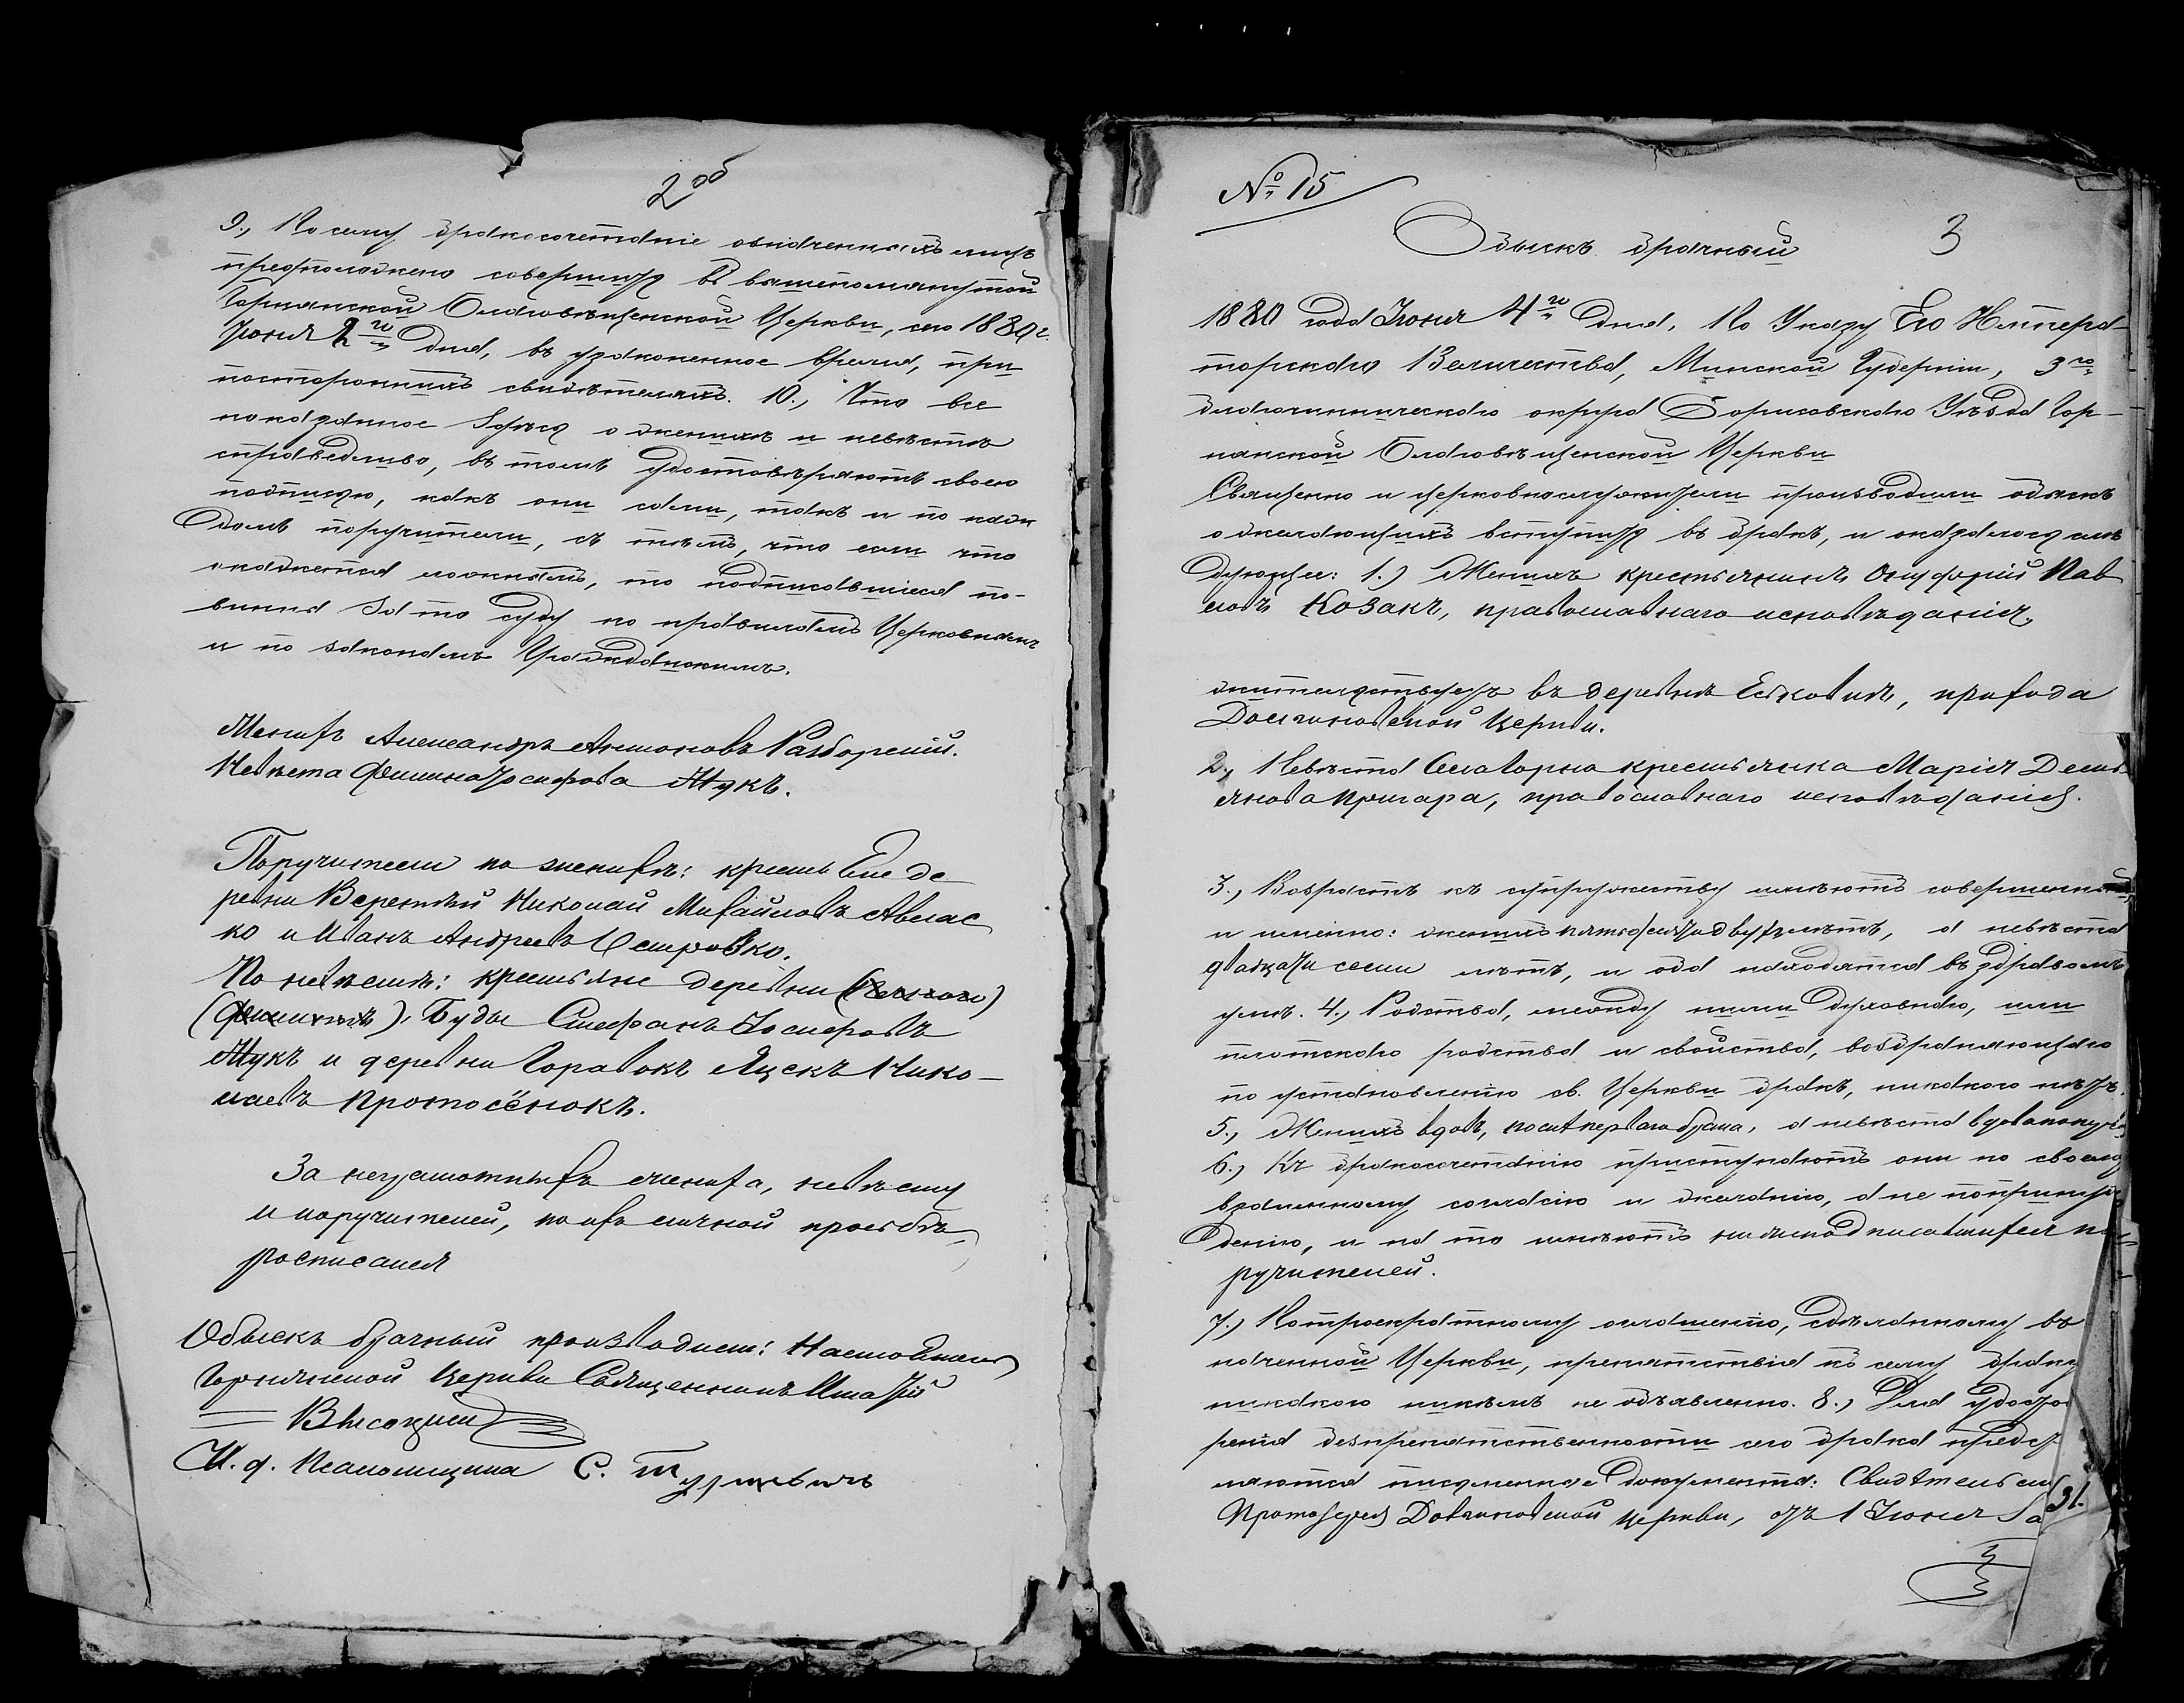 2 об
9., По сему бракосочетаніе обозначенныхъ лицъ
предположено совершить въ вышепомянутой
Горнянской Благовѣщенской Церкви, сего 1880 г.
Іюня 2го дня, въ узаконенное время, при
постороннихъ свидѣтеляхъ. 10., Что все
показанное здѣсь о женихѣ и невѣстѣ
справедливо, въ томъ удостовѣряютъ своею
подписью, какъ они сами, такъ и по каж
домъ поручители, съ тѣмъ, что если что
окажется ложнымъ, то подписавшіеся по-
винны за то суду по правиламъ Церковнымъ
и по законамъ Гражданскимъ.
Женихъ Александръ Антоновъ
Невѣста Іосифова Жукъ.
Поручители по женихѣ: крестьяне де
ревни Веретей Николай Михайловъ Авлас
ко и Иванъ Андреевъ
По невѣстѣ: крестьяне деревни
Буды Стефанъ Іосифовъ
Жукъ и деревни Горавокъ Яцекъ Нико-
лаевъ Протосёнокъ.
За неграмотныхъ жениха, невѣсту
и поручителей, по ихъ личной просьбѣ,
росписался
Обыскъ брачный производили: Настоятель
Горнянской Церкви Священникъ Игнатій
Высоцкій
И. д. Псаломщика С.
№ 15
3
Обыскъ брачный
1880 года Іюня 4го дня. По Указу Его Импера-
торскаго Величества, Минской Губерніи, 3го
благочинническаго округа Борисовскаго Уѣзда Гор-
нянской Благовѣщенской Церкви
Священно и церковнослужители производили обыскъ
о желающихъ вступить въ бракъ, и оказалось слѣ
дующее: 1.) Женихъ крестьянинъ Онуфрій Пав
ловъ Козакъ, православнаго исповѣданія,
жительствуетъ въ деревнѣ Еськовичъ, прихода
Долгиновской Церкви.
2., Невѣста крестьянка Марія Демь
янова православнаго исповѣданія.
3., Возрастъ къ супружеству имѣютъ совершенный,
и именно: женихъ пятидесяти двухъ лѣтъ, а невѣста
двадцати семи лѣтъ, и оба находятся въ здравомъ
умѣ. 4., Родства, между ними духовнаго, или
плотскаго родства и свойства, возбраняющаго
по установленію св. Церкви бракъ, никакого нѣтъ.
5., Женихъ вдовъ, послѣ перваго брака, а невѣста вдова
6., Къ бракосочетанію приступаютъ они по своему
взаимному согласію и желанію, а не по принуж
денію, и на то имѣютъ подписавшихся по
ручителей.
7., По троекратному оглашенію, сдѣланному въ
наченной Церкви, препятствія къ сему браку
никакого никѣмъ не объявленно. 8., Для удостовѣ
ренія безпрепятственности сего брака предст
ляются письменные документы: Свидѣтельство
Протоіерея Долгиновской церкви, отъ 1 Іюня за
31.